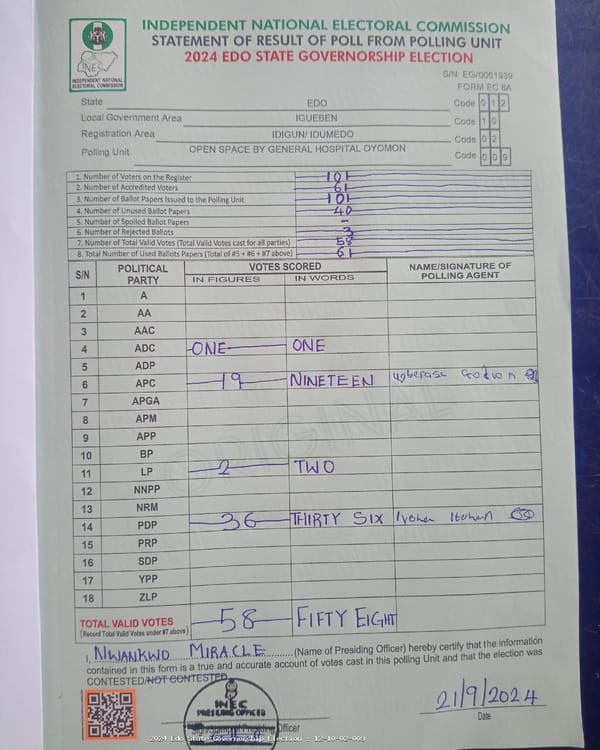 INDEPENDENT NATIONAL ELECTORAL COMMISSION
STATEMENT OF RESULT OF POLL FROM POLLING UNIT
2024 EDO STATE GOVERNORSHIP ELECTION
INEC
INDEPENDENT NATIONAL
ELECTORAL COMMISSION
S/N: EG/0001939
FORM EC 8A
State EDO Code 0 1 2
Local Government Area IGUEBEN Code 1 0
Registration Area IDIGUN/ IDUMEDO Code 0 2
Polling Unit OPEN SPACE BY GENERAL HOSPITAL OYOMON Code 0 0 9
1. Number of Voters on the Register 101
2. Number of Accredited Voters 61
3. Number of Ballot Papers Issued to the Polling Unit 101
4. Number of Unused Ballot Papers 40
5. Number of Spoiled Ballot Papers -
6. Number of Rejected Ballots 3
7. Number of Total Valid Votes (Total Valid Votes cast for all parties) 58
8. Total Number of Used Ballots Papers (Total of #5 + #6 + #7 above) 61
S/N POLITICAL PARTY VOTES SCORED NAME/SIGNATURE OF POLLING AGENT
IN FIGURES IN WORDS
1 A
2 AA
3 AAC
4 ADC ONE ONE
5 ADP
6 APC 19 NINETEEN
7 APGA
8 APM
9 APP
10 BP
11 LP 2 TWO
12 NNPP
13 NRM
14 PDP 36 THIRTY SIX
15 PRP
16 SDP
17 YPP
18 ZLP
ORIGINAL
TOTAL VALID VOTES 58 FIFTY EIGHT
(Record Total Valid Votes under #7 above)
I, NWANKWO MIRACLE (Name of Presiding Officer) hereby certify that the information
contained in this form is a true and accurate account of votes cast in this polling Unit and that the election was
CONTESTED/NOT CONTESTED
INEC
PRESIDING OFFICER
Officer
21/9/2024
Date
2024 Edo State Governorship Election : 12-10-02-009